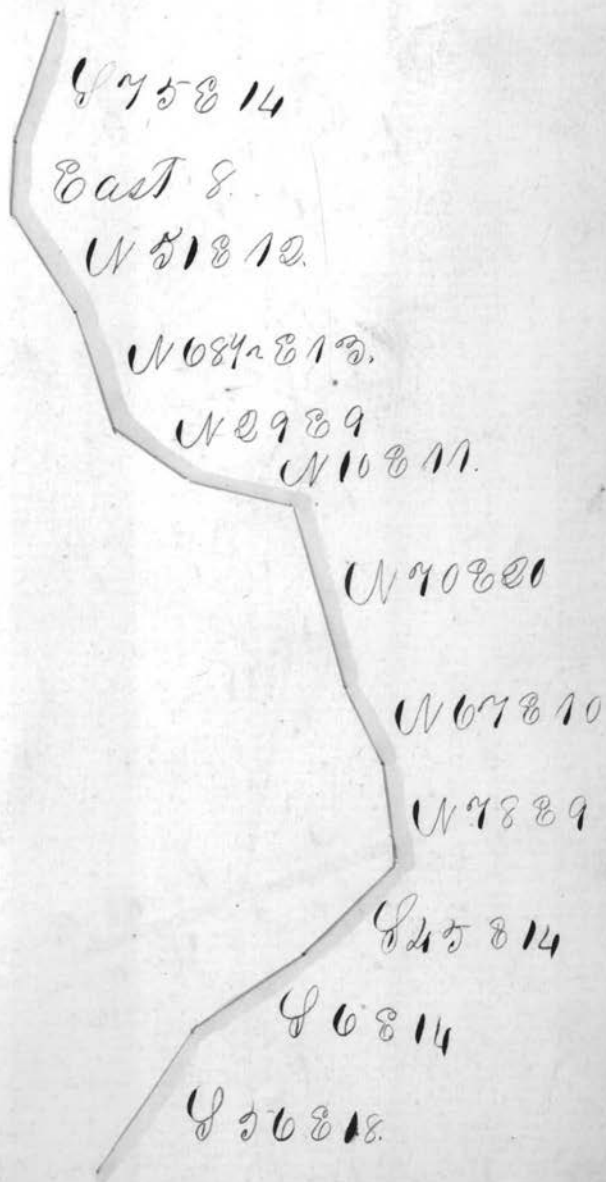 S 75 E 14
East 8.
N 51 E 12.
N 68½ E 13.
N 29 E 9
N 10 E 11.
N 70 E 20
N 67 E 10
N 78 E 9
S 45 E 14
S 6 E 14
S 56 E 18.